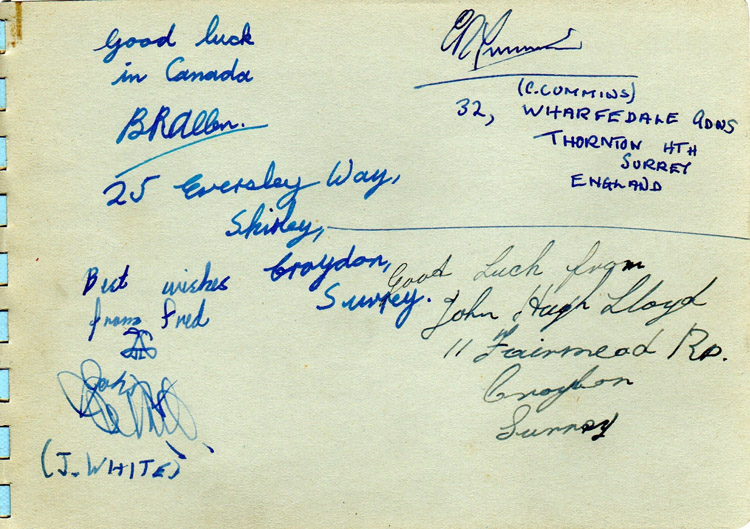 Good luck
in Canada
BRAllen.
25 Eversley Way,
Shirley,
Croydon,
Surrey.
(C. CUMMINS)
32, WHARFEDALE GDNS
THORNTON HTH
SURREY
ENGLAND
Best wishes
from Fred
(J. WHITE)
Good Luck from
John Hugh Lloyd
11 Fairmead Rd.
Croydon
Surrey